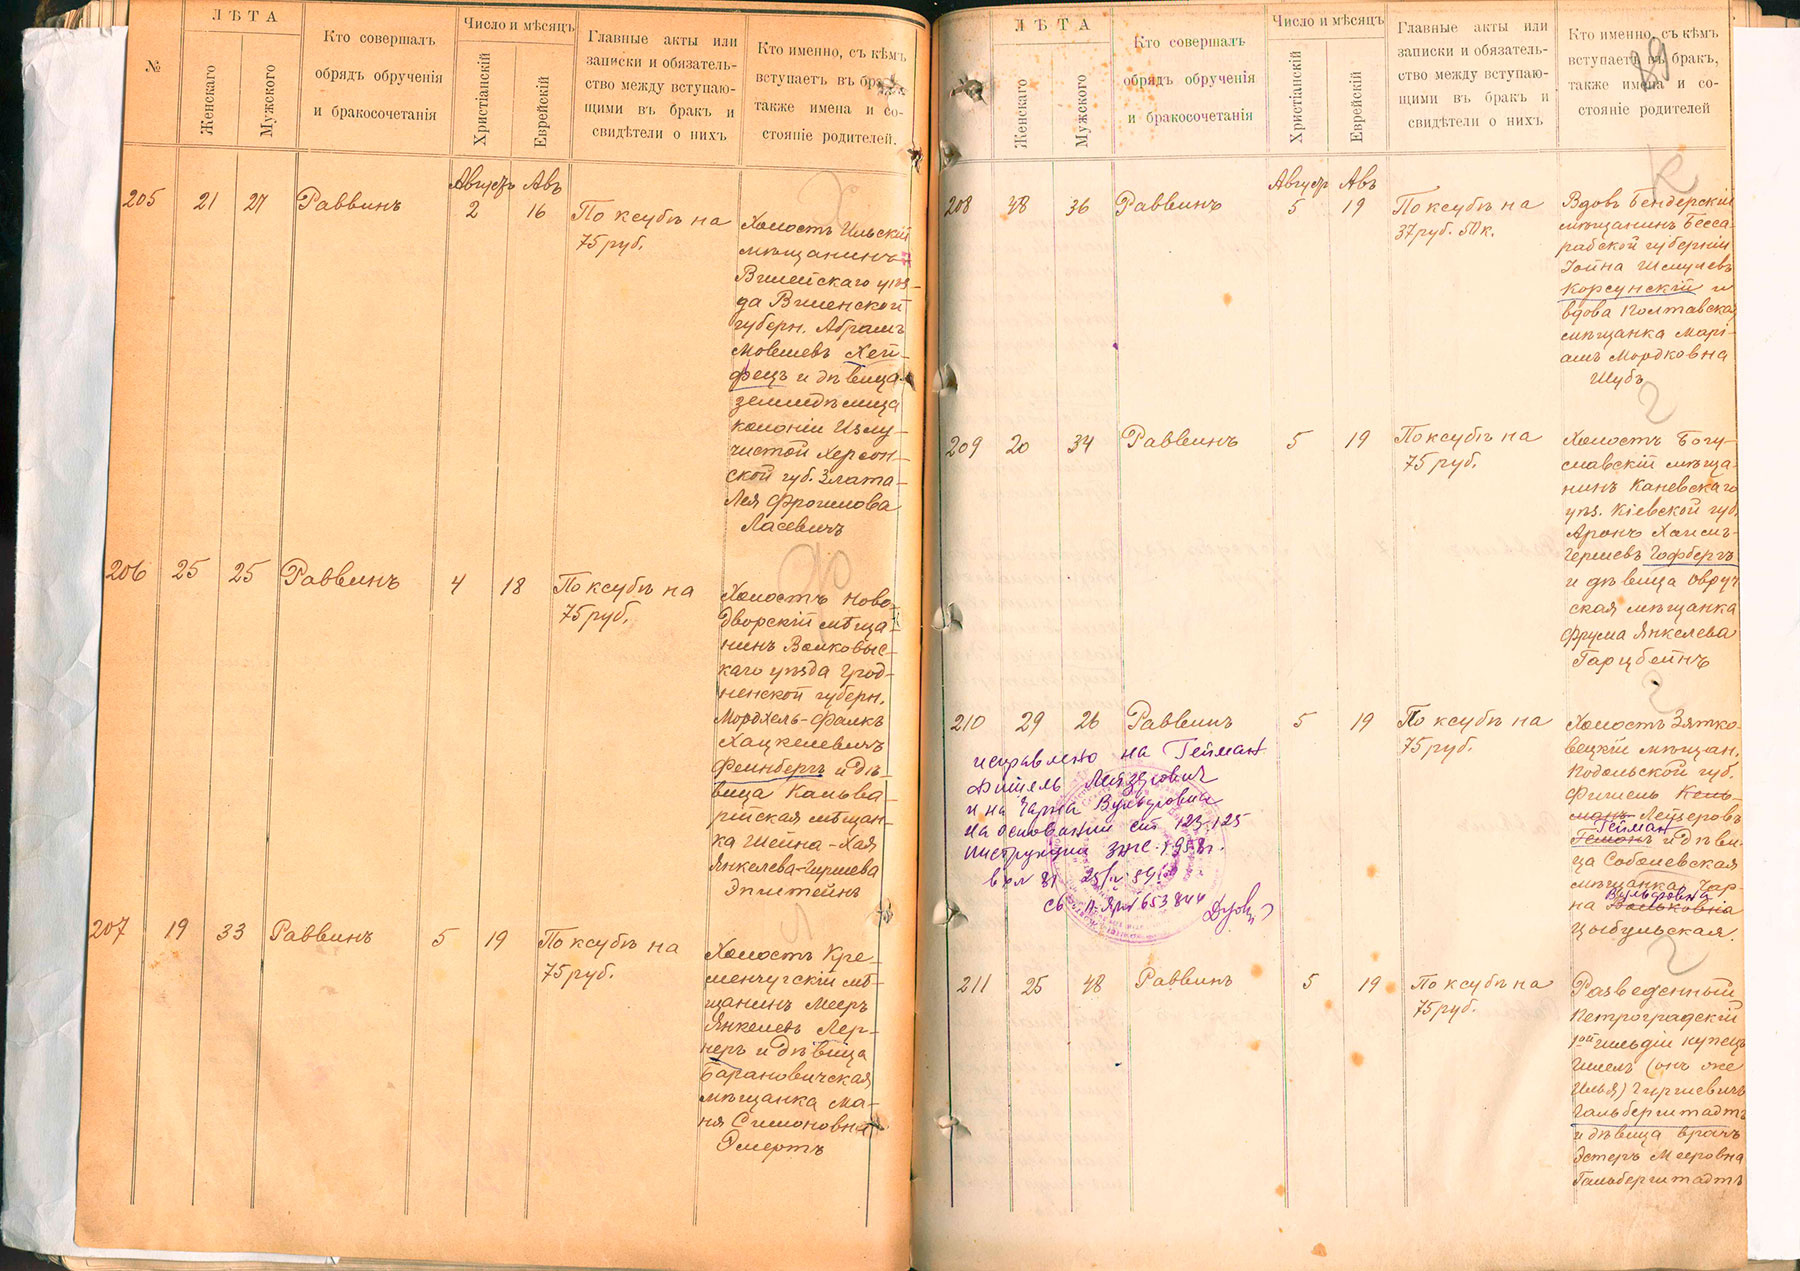 №
ЛѢТА
Женскаго
Мужского
Кто совершалъ
обрядъ обрученія
и бракосочетанія
Число и мѣсяцъ
Христіанскій
Еврейскій
Главные акты или
записки и обязатель-
ство между вступаю-
щими въ бракъ и
свидѣтели о нихъ
Кто именно, съ кѣмъ
вступаетъ въ бракъ,
также имена и со-
стояніе родителей.
Августъ Авъ
205 21 27 Раввинъ 2 16 По ксубѣ на
75 руб.
Холостъ Ильскій
мѣщанинъ
Вилейскаго уѣз-
да Виленской
губерн. Абрамъ
Мовшевъ Хей-
фецъ и дѣвица
земледѣлица
колоніи Излу-
чистой Херсон-
ской губ. Злата-
Лея Фроимова
Ласевичъ
206 25 25 Раввинъ 4 18 По ксубѣ на
75 руб.
Холостъ Ново-
дворскій мѣща-
нинъ Волковыс-
каго уѣзда Грод-
ненской губерн.
Мордхель-Фалкъ
Хацкелевичъ
Феинбергъ и дѣ-
вица Кальва-
рійская мѣщан-
ка Шейна-Хая
Янкелева-Гиршева
Эпштейнъ
207 19 33 Раввинъ 5 19 По ксубѣ на
75 руб.
Холостъ Кре-
менчугскій мѣ-
щанинъ Мееръ
Янкелевъ Лер-
неръ и дѣвица
Барановичская
мѣщанка Ма-
ня Симоновна
Эмертъ
89
ЛѢТА
Женскаго
Мужского
Кто совершалъ
обрядъ обрученія
и бракосочетанія
Число и мѣсяцъ
Христіанскій
Еврейскій
Главные акты или
записки и обязатель-
ство между вступаю-
щими въ бракъ и
свидѣтели о нихъ
Кто именно, съ кѣмъ
вступаетъ въ бракъ,
также имена и со-
стояніе родителей
Августъ Авъ
208 48 36 Раввинъ 5 19 По ксубѣ на
37 руб. 50 к.
Вдовъ Бендерскій
мѣщанинъ Бесса-
рабской губерніи
Іойна Шмулевъ
Корсунскій и
вдова Полтавская
мѣщанка Марі-
амъ Мордковна
Шубъ
209 20 34 Раввинъ 5 19 По ксубѣ на
75 руб.
Холостъ Богу-
славскій мѣща-
нинъ Каневскаго
уѣз. Кіевской губ.
Аронъ Хаимъ-
Гершевъ Гофбергъ
и дѣвица Овруч-
ская мѣщанка
Фрума Янкелева
Гарцбейнъ
210 29 26 Раввинъ 5 19 По ксубѣ на
75 руб.
Холостъ Зятко-
вецкій мѣщан.
Подольской губ.
Фишель Кель-
манъ Лейзеровъ
Гейман
Гемонъ и дѣви-
ца Соболевская
мѣщанка Чар-
Вульфовна
на Вольковна
Цыбульская.
исправлено на Гейман
Фишель Лейзерович
и на Чарна Вульфовна
на основании ст 123, 125
Инструкции загс 1958 г.
653844
211 25 48 Раввинъ 5 19 По ксубѣ на
75 руб.
Разведенный
Петроградскій
1ой гильдіи купецъ
Шмель (онъ же
Илья) Гиршевичъ
Гальберштадтъ
и дѣвица врачъ
Эстеръ Мееровна
Гальберштадтъ